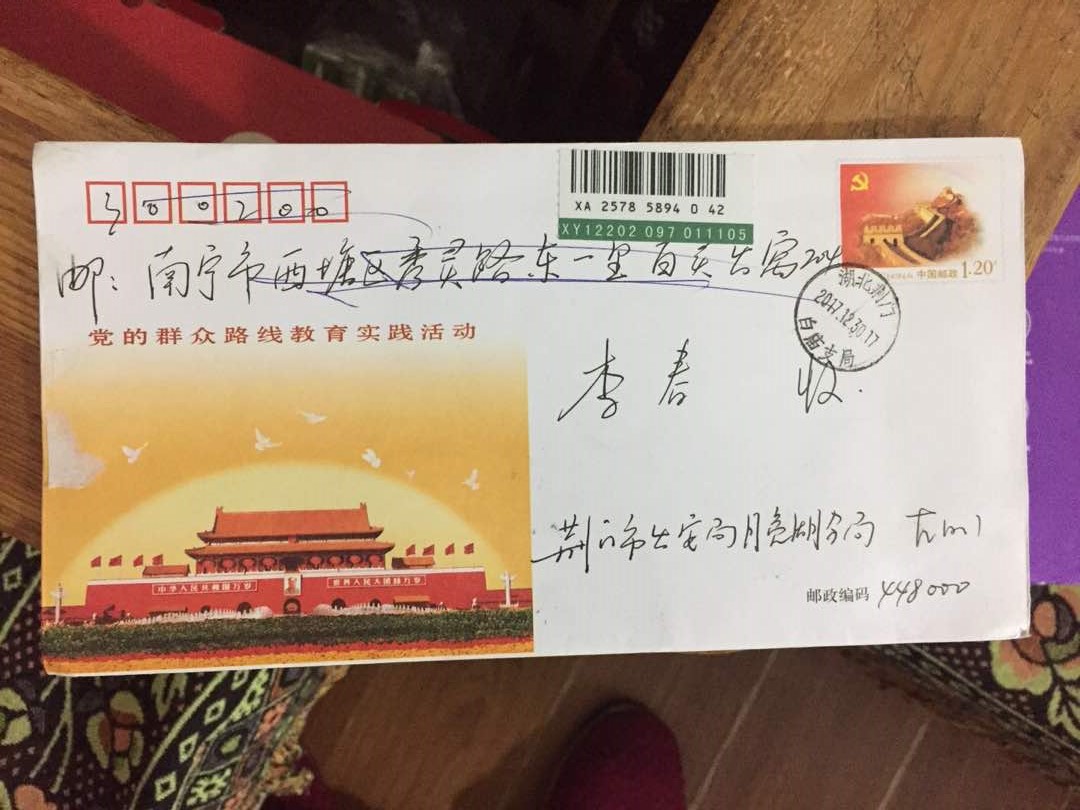 XA 2578 5894 0 42
XY12202 097 011105
邮：南宁市西塘区秀灵路东一里百灵公寓204
中国邮政 1.20
湖北荆门
2017.12.30.17
白庙支局
党的群众路线教育实践活动
李春 收.
中华人民共和国万岁
世界人民大团结万岁
荆门市公安局月亮湖分局
邮政编码 448000